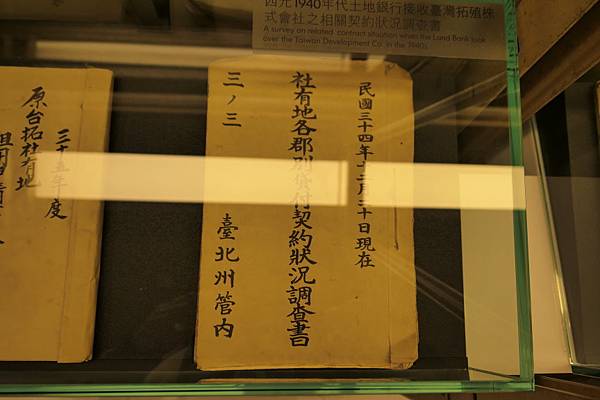 西元1940年代土地銀行接收臺灣拓殖株
式會社之相關契約狀況調查書
A survey on related contract situation when the Land Bank took
over the Taiwan Development Co. in the 1940s.
民國三十四年十二月三十日現在
社有地各郡別貸付契約狀況調查書
三ノ三
臺北州管内
三十五年度
原台拓社有地